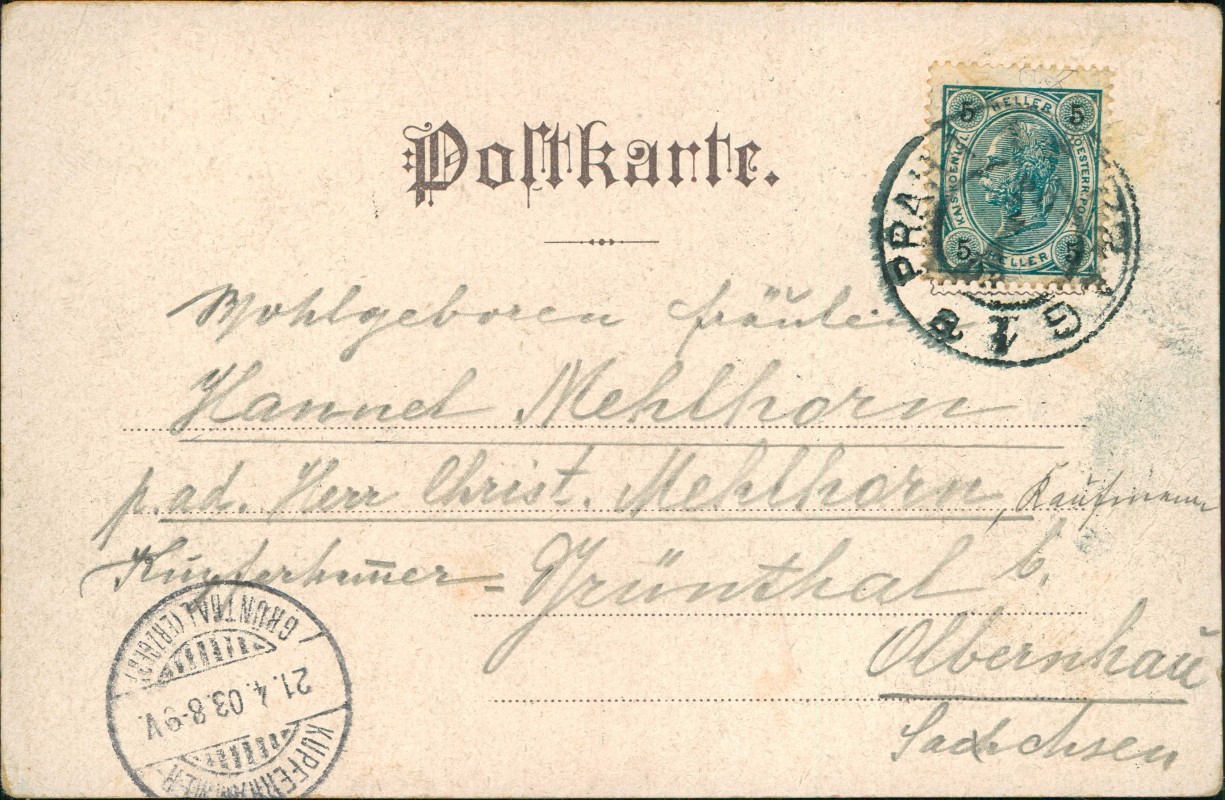 Postkarte.
5 HELLER 5
KAIS. KOENIGL. OESTERR. POST
5 HELLER 5
PRAG 1
Wohlgeboren fräulein
Hannel Mehlhorn
p. ad. Herr Christ. Mehlhorn, Kaufmann
Kupferham̄er = Grünthal b.
Olbernhau
Sachchsen
KUPFERHAMMER-GRÜNTHAL (ERZGEB.)
21.4.03.8-9V.